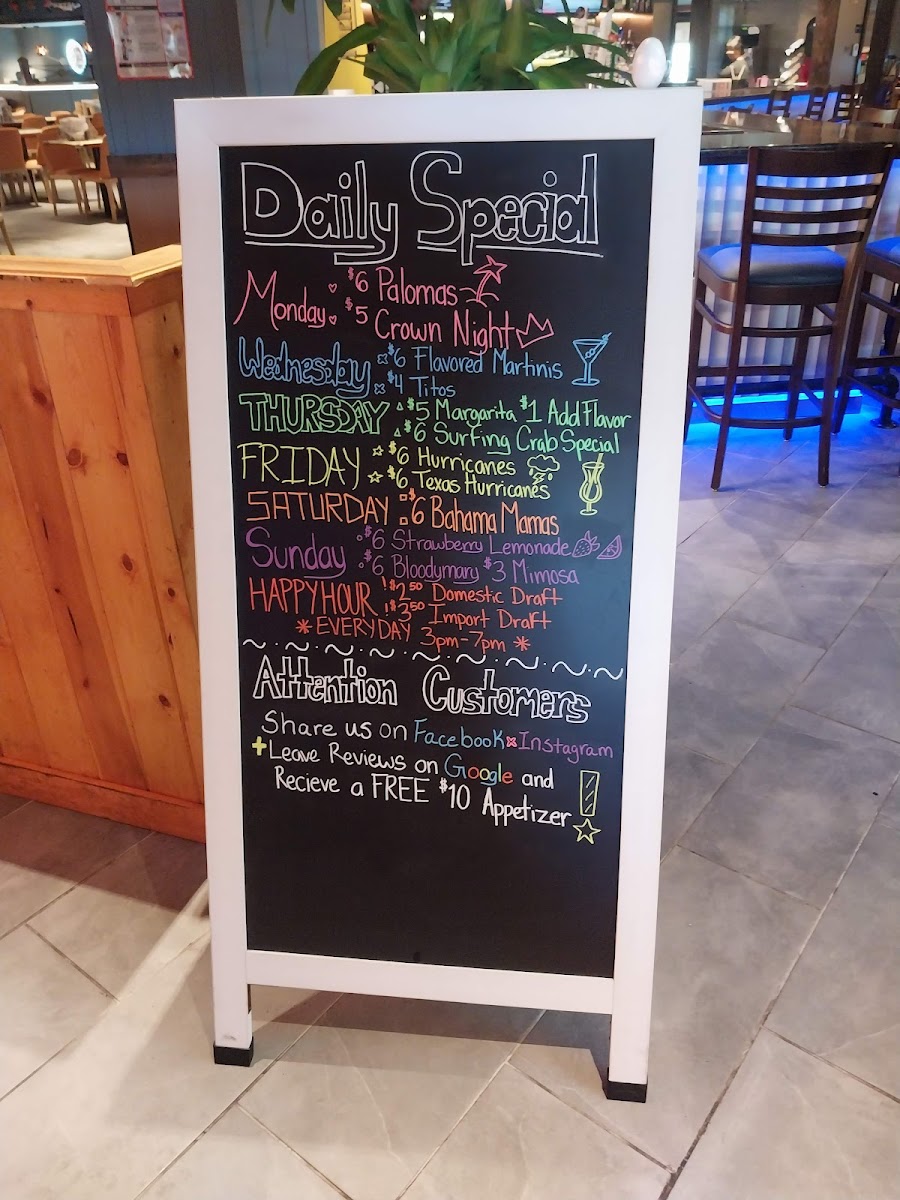 Daily Special
Monday $6 Palomas
$5 Crown Night
Wednesday $6 Flavored Martinis
$4 Titos
THURSDAY $5 Margarita $1 Add Flavor
$6 Surfing Crab Special
FRIDAY $6 Hurricanes
$6 Texas Hurricanes
SATURDAY $6 Bahama Mamas
Sunday $6 Strawberry Lemonade
$6 Bloodymary $3 Mimosa
HAPPY HOUR ! $2.50 Domestic Draft
! $3.50 Import Draft
* EVERYDAY 3pm-7pm *
Attention Customers
Share us on Facebook Instagram
+ Leave Reviews on Google and
Recieve a FREE $10 Appetizer!